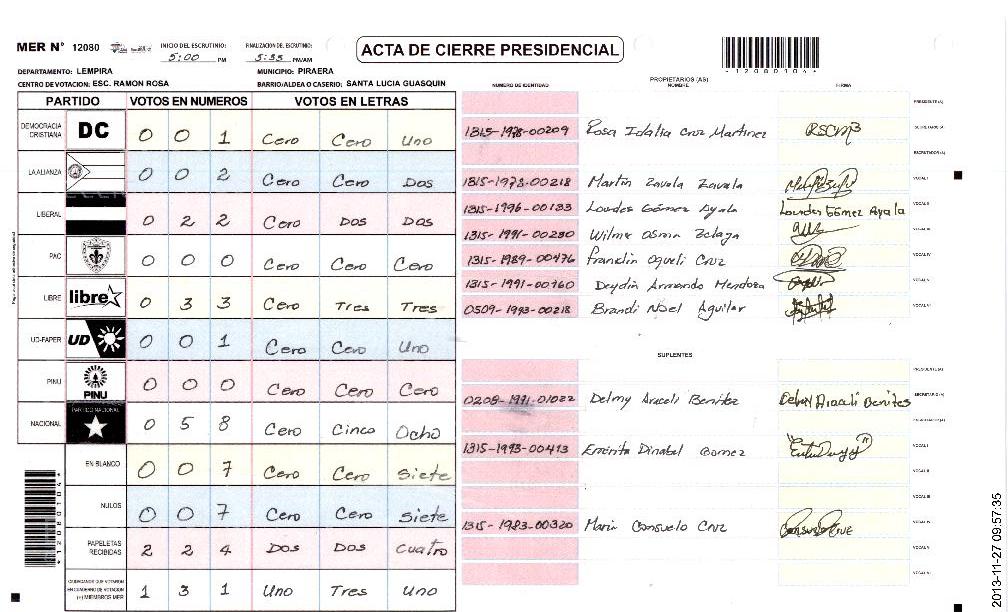 MER N° 12080 INICIO DEL ESCRUTINIO: 5:00 PM FINALIZACION DEL ESCRUTINIO: 5:55 PM/AM
ACTA DE CIERRE PRESIDENCIAL
*12080104*
DEPARTAMENTO: LEMPIRA MUNICIPIO: PIRAERA
CENTRO DE VOTACION: ESC. RAMON ROSA BARRIO/ALDEA O CASERIO: SANTA LUCIA GUASQUIN
PARTIDO VOTOS EN NUMEROS VOTOS EN LETRAS
DEMOCRACIA CRISTIANA DC 0 0 1 Cero Cero Uno
LA ALIANZA 0 0 2 Cero Cero Dos
LIBERAL 0 2 2 Cero Dos Dos
PAC 0 0 0 Cero Cero Cero
LIBRE libre 0 3 3 Cero Tres Tres
UD-FAPER UD 0 0 1 Cero Cero Uno
PINU PINU 0 0 0 Cero Cero Cero
NACIONAL PARTIDO NACIONAL 0 5 8 Cero Cinco Ocho
EN BLANCO 0 0 7 Cero Cero Siete
NULOS 0 0 7 Cero Cero Siete
PAPELETAS RECIBIDAS 2 2 4 Dos Dos Cuatro
CIUDADANOS QUE VOTARON EN CUADERNO DE VOTACION (+) MIEMBROS MER 1 3 1 Uno Tres Uno
*12080104*
PROPIETARIOS (AS)
NUMERO DE IDENTIDAD NOMBRE FIRMA
PRESIDENTE(A)
1315-1978-00209 Rosa Idalia Cruz Martinez RSCM SECRETARIO(A)
ESCRUTADOR(A)
1315-1978-00218 Martin Zavala Zavala VOCAL I
1315-1996-00133 Lourdes Gómez Ayala Lourdes Gómez Ayala VOCAL II
1315-1991-00230 Wilmer Osmin Zelaya VOCAL III
1315-1989-00476 Franklin Oqueli Cruz VOCAL IV
1315-1991-00760 Deydin Armando Mendoza VOCAL V
0509-1993-00218 Brandi Noel Aguilar VOCAL VI
SUPLENTES
PRESIDENTE(A)
0208-1991-01022 Delmy Araceli Benitez Delmy Araceli Benites SECRETARIO(A)
ESCRUTADOR(A)
1315-1993-00413 Dinabel Gomez VOCAL I
VOCAL II
VOCAL III
1315-1983-00320 Maria Consuelo Cruz Consuelo Cruz VOCAL IV
VOCAL V
VOCAL VI
2013-11-27 09:57:35